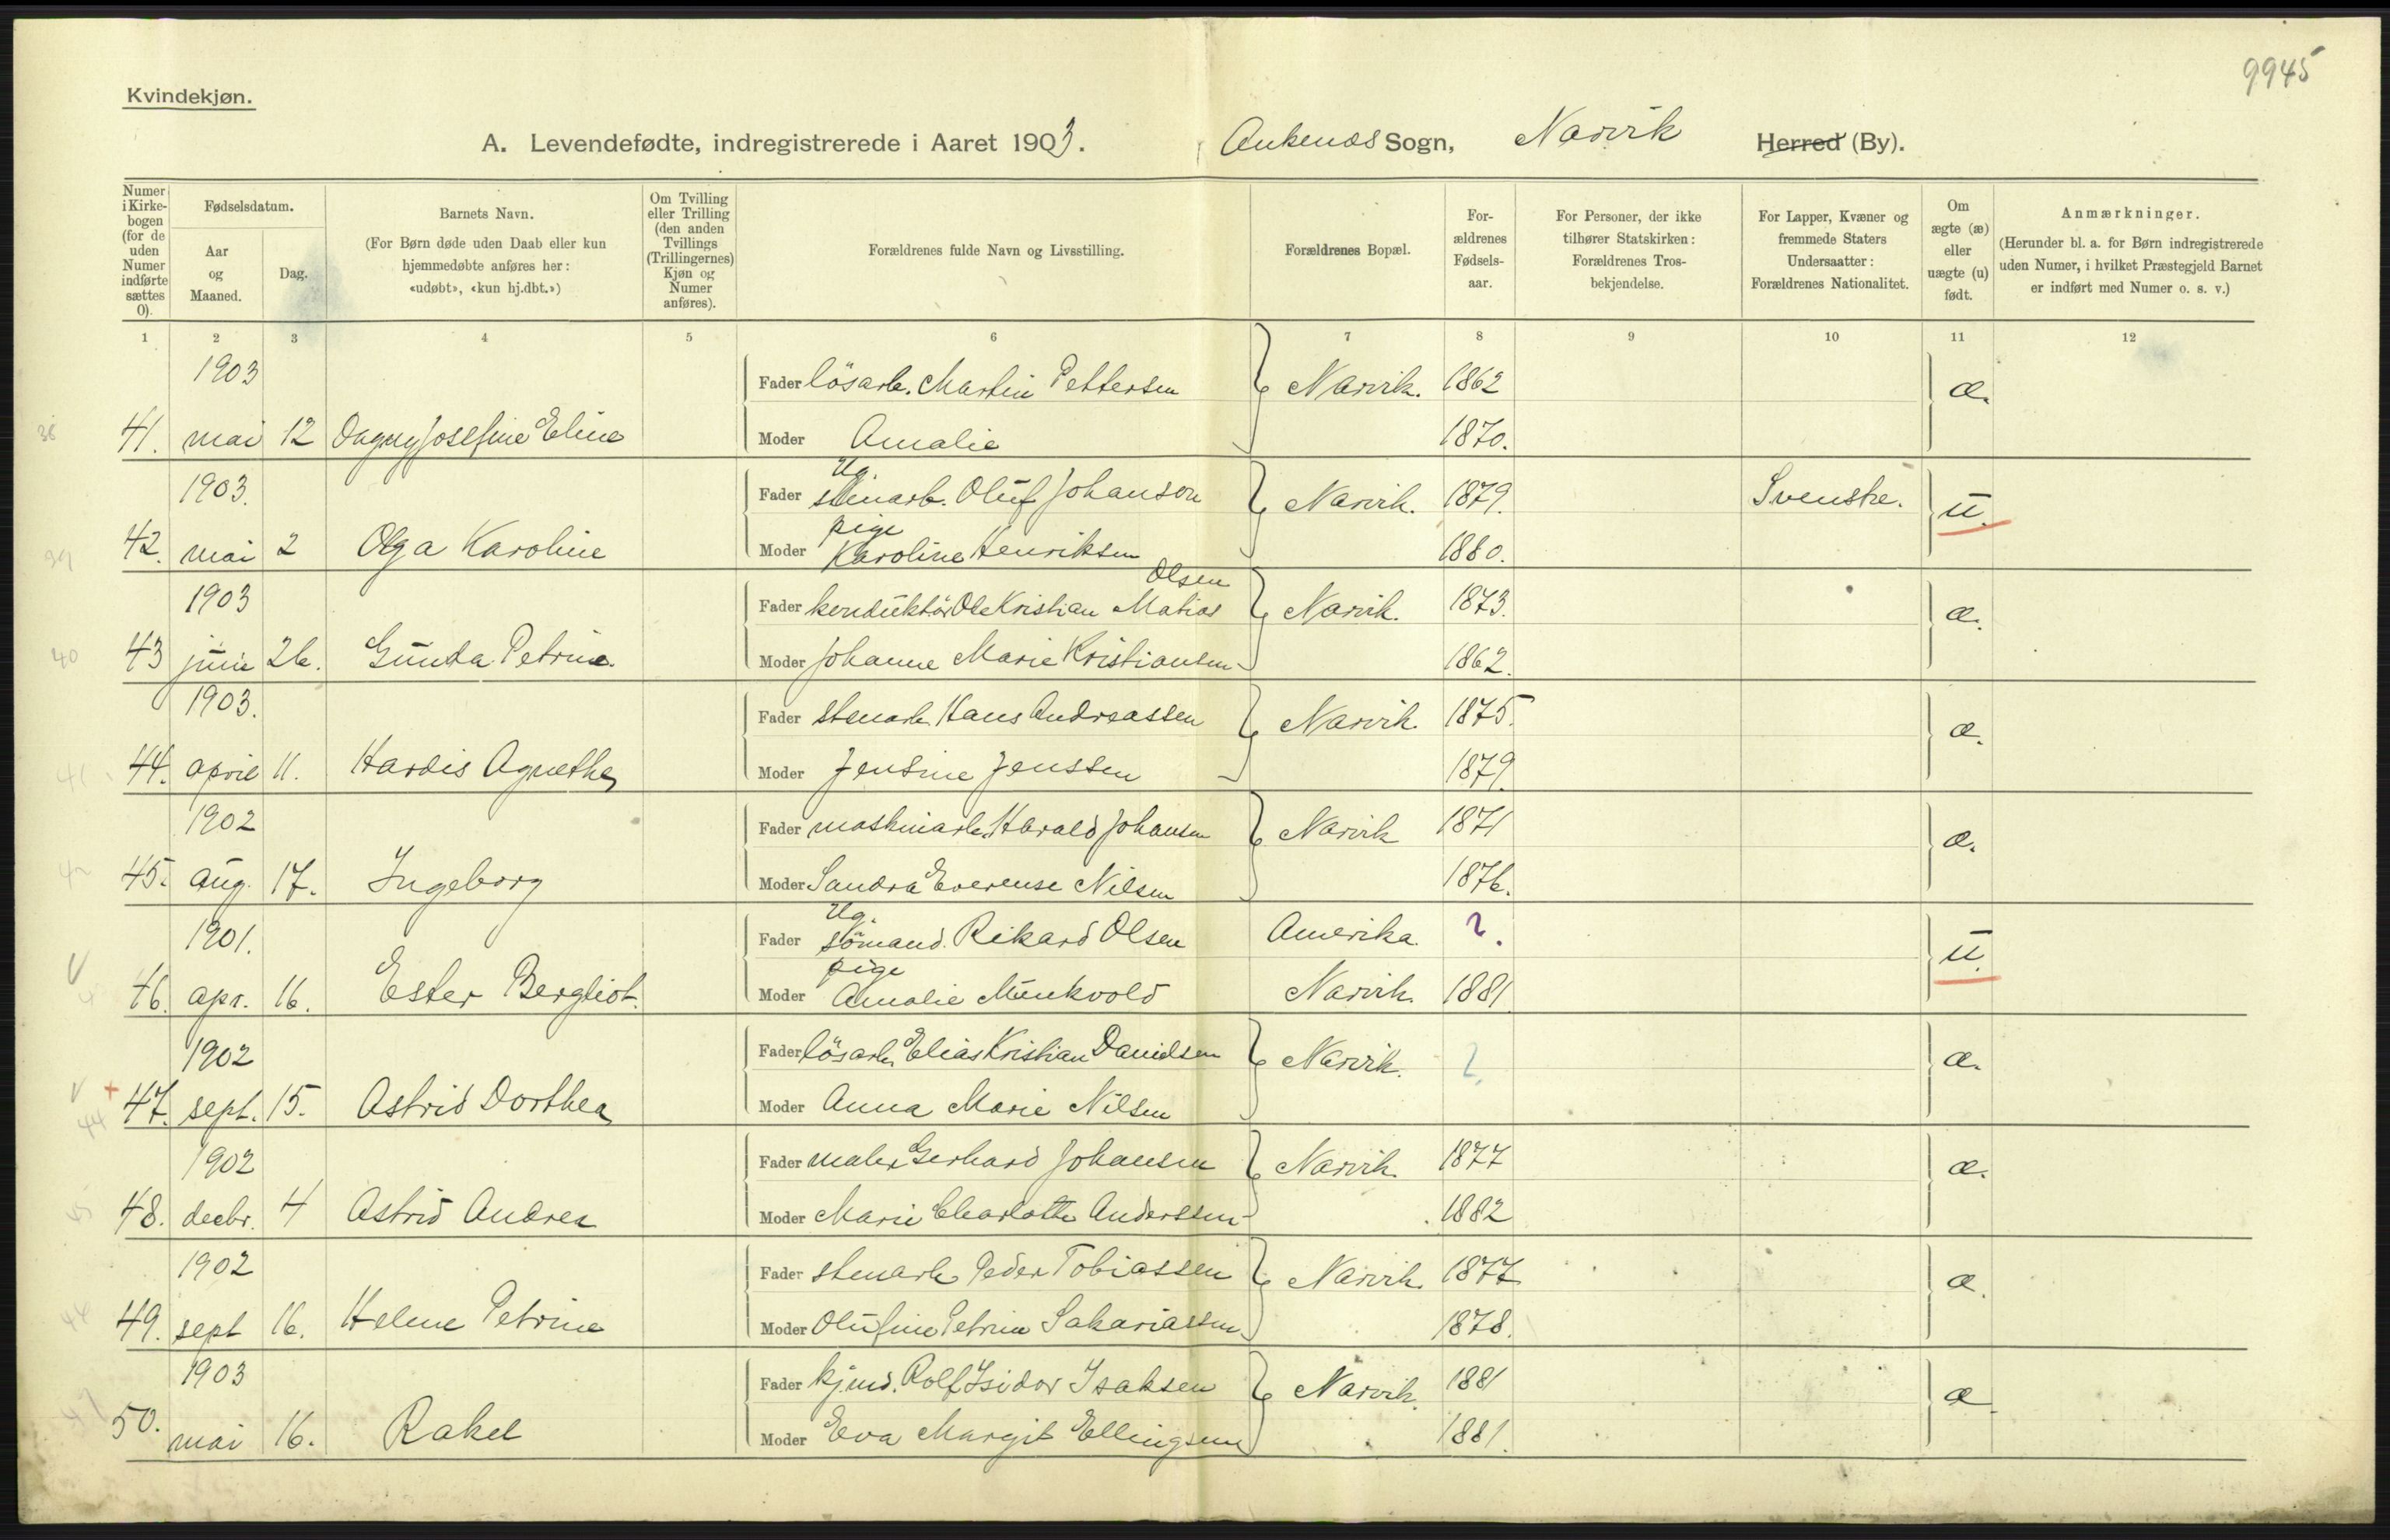 9945
Kvindekjøn.
A. Levendefødte, indregistrerede i Aaret 1903. Ankenæs Sogn, Narvik Herred (By).
Numer i Kirke-bogen (for de uden Numer indførte sættes 0).
Fødselsdatum.
Aar og Maaned.
Dag.
Barnets Navn.
(For Børn døde uden Daab eller kun hjemmedøbte anføres her: «udøbt», «kun hj.dbt.»)
Om Tvilling eller Trilling (den anden Tvillings (Trillingernes) Kjøn og Numer anføres).
Forældrenes fulde Navn og Livsstilling.
Forældrenes Bopæl.
For-ældrenes Fødsels-aar.
For Personer, der ikke tilhører Statskirken: Forældrenes Tros-bekjendelse.
For Lapper, Kvæner og fremmede Staters Undersaatter: Forældrenes Nationalitet.
Om ægte (æ) eller uægte (u) født.
Anmærkninger.
(Herunder bl. a. for Børn indregistrerede uden Numer, i hvilket Præstegjeld Barnet er indført med Numer o. s. v.)
1 2 3 4 5 6 7 8 9 10 11 12
1903 Fader lösarb. Martin Pettersen Narvik. 1862 æ.
38 41. mai 12 Dagny Josefine Eline Moder Amalie 1870.
Ug.
1903. Fader stenarb. Oluf Johanson Narvik. 1879. Svenske. u.
pige
39 42. mai 2 Olga Karoline Moder Karoline Henriksen 1880.
Olsen
1903 Fader konduktör Ole Kristian Matias Narvik. 1873. æ.
40 43 juni 26. Gunda Petrine. Moder Johanne Marie Kristiansen 1862.
1903. Fader stenarb. Hans Andreassen Narvik. 1875. æ.
41 44. april 11. Hardis Agnethe Moder Jensine Jenssen 1879.
1902 Fader maskinarb. Harald Johansen Narvik 1871 æ.
42 45. aug. 17. Ingeborg Moder Sandra Everense Nilsen 1876.
Ug.
1901. Fader sömand. Rikard Olsen Amerika. ?. u.
pige
46. apr. 16. Ester Bergliot. Moder Amalie Munkvold Narvik. 1881
1902 Fader lösarb. Elias Kristian Danielsen Narvik. ? æ.
44 47. sept. 15. Astrid Dorthea Moder Anna Marie Nilsen
1902 Fader maler Gerhard Johansen Narvik. 1877 æ.
45 48. decbr. 4 Astrid Andrea Moder Marie Charlotte Anderssen 1882
1902 Fader stenarb. Peder Tobiassen Narvik 1877 æ.
49. sept 16. Helene Petrine Moder Olufine Petrine Sakariassen 1878.
1903 Fader kjmd. Rolf Isidor Isaksen Narvik. 1881 æ.
47 50. mai 16. Rakel Moder Eva Margit Ellingsen 1881.